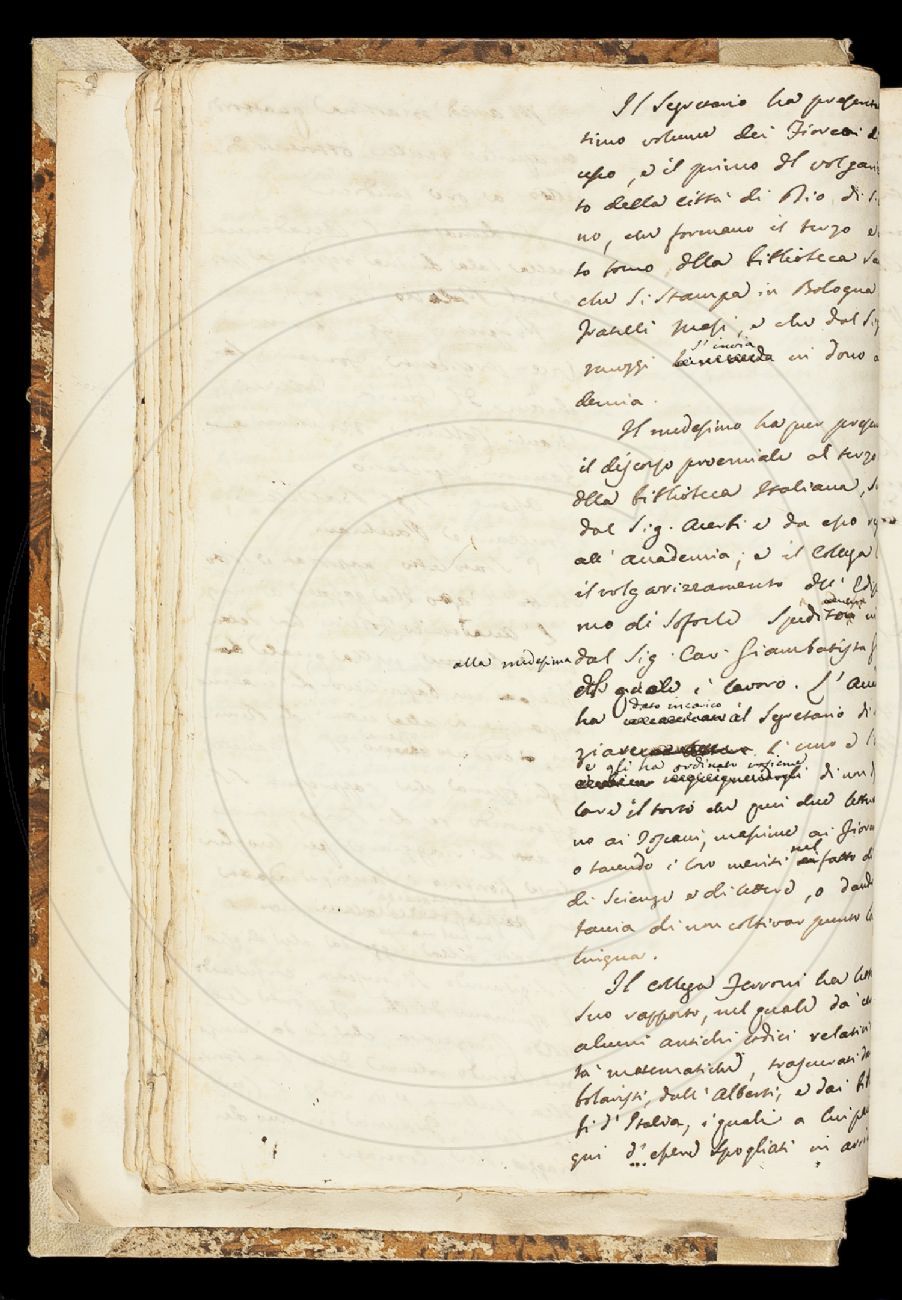 Il Segretario ha presen
timo volume dei Fioretti d
cesco, e il primo del volgariz
to della città di Dio di S.
no, che formano il terzo e
to tomo della biblioteca
che si stampa in Bologna
Fratelli Masi, e che dal Sig
s'invia
in dono a
demia.
Il medesimo ha pur pres
il discorso proemiale al terzo
della biblioteca Italiana,
dal Sig. Acerbi e da esso
all'accademia; e il collega
il volgarizzamento dell'Edip
mo di Sofocle
alla medesima dal Sig. Cav. Giambatista
del quale è lavoro. L'Acca
dato incarico
ha al Segretario di
l'uno e l'
e gli ha ordinato insieme
di non
lare il torto che quei due
no ai Toscani, massime ai Fior
o tacendo i loro meriti nel fatto di
di Scienze e di lettere, o dand
taccia di non coltivar punto la
lingua.
Il collega Ferroni ha letto
suo rapporto, nel quale dà
alcuni antichi codici relativi
tà matematiche, trascurati da
bolaristi, dall'Alberti, e dai
fi d'Italia, i quali a lui pa
gni d'essere spogliati in